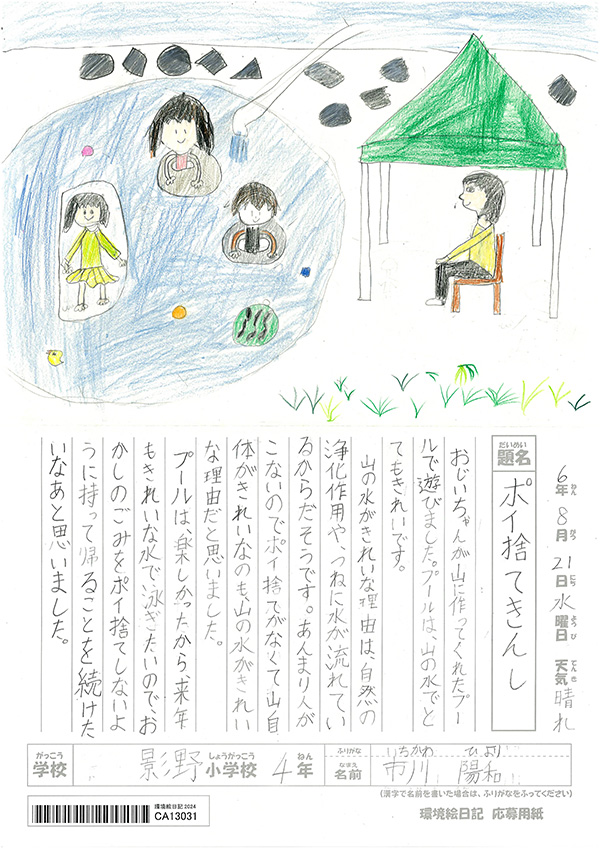 6年8月21日水曜日 天気 晴れ
ねん がつ にち ようび てんき
だいめい
題名 ポイ捨てきんし
おじいちゃんが山に作ってくれたプー
ルで遊びました。プールは、山の水でと
てもきれいです。
山の水がきれいな理由は、自然の
浄化作用や、つねに水が流れてい
るからだそうです。あんまり人が
こないのでポイ捨てがなくて山自
体がきれいなのも、山の水がきれい
な理由だと思いました。
プールは、楽しかったから、来年
もきれいな水で泳ぎたいのでお
かしのごみをポイ捨てしないよ
うに持って帰ることを続けた
いなあと思いました。
がっこう しょうがっこう ねん
学校 影野小学校 4年
ふりがな いちかわ ひより
なまえ
名前 市川 陽和
(漢字で名前を書いた場合は、ふりがなをふってください)
環境絵日記2024
CA13031
環境絵日記 応募用紙